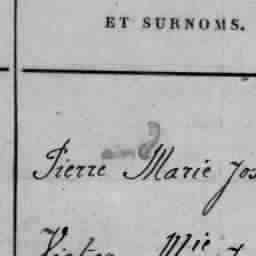 ET SURNOMS.
Pierre Marie Jos
Victor Mie